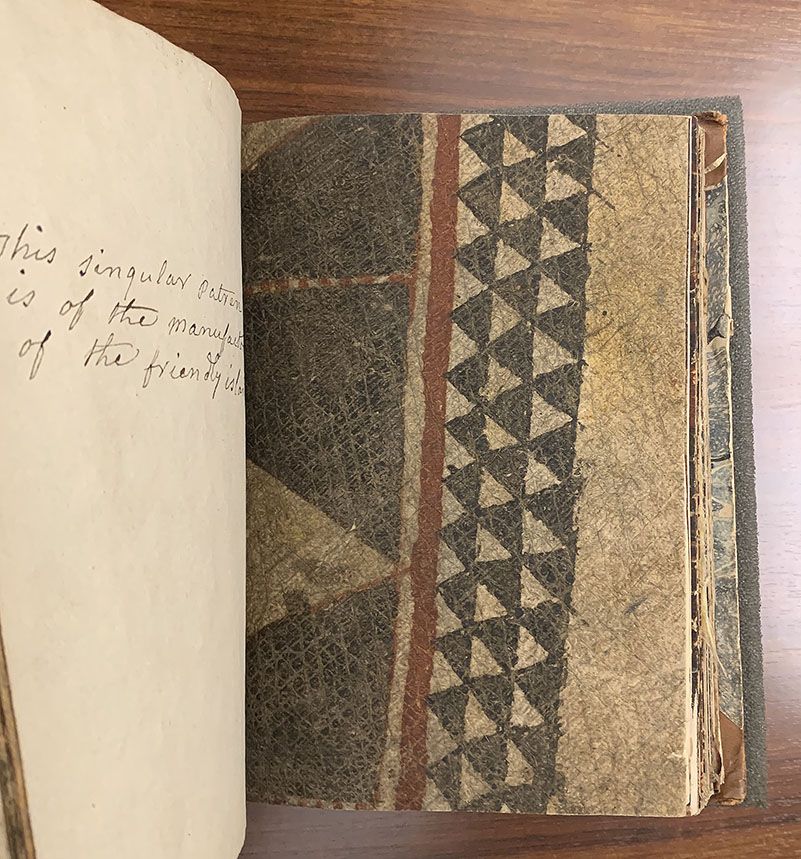 This singular patren
is of the manufactu
of the friendly isla